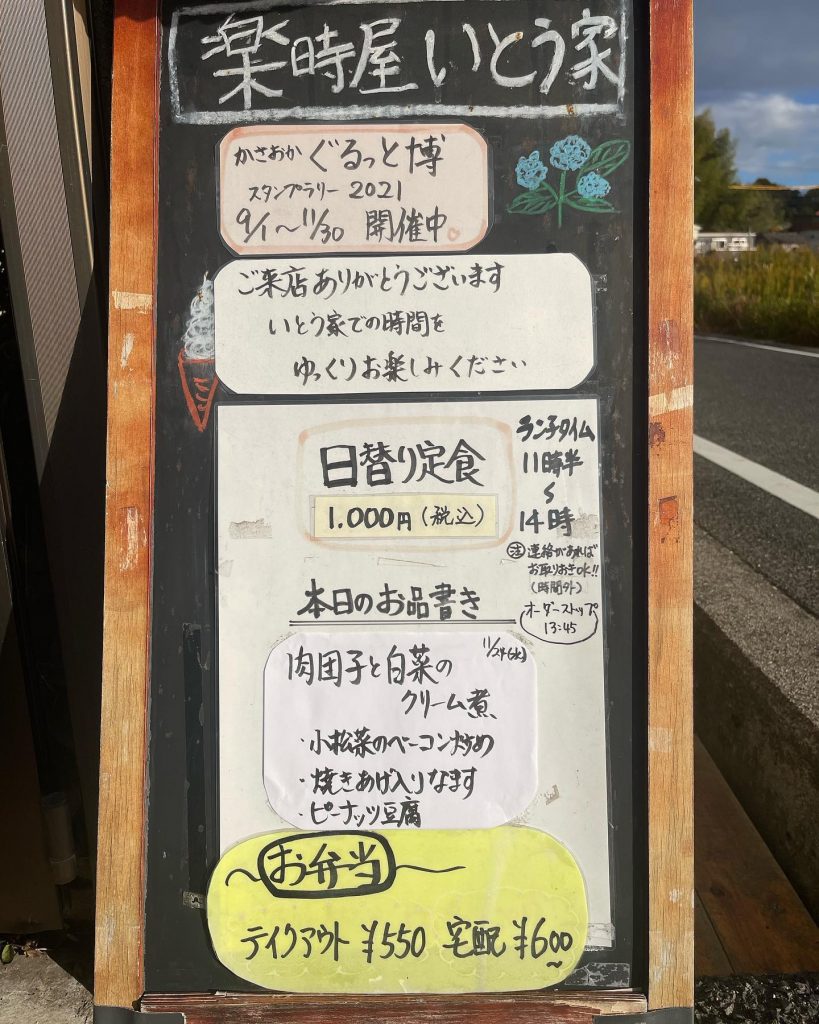 楽時屋 いとう家
かさおか ぐるっと博
スタンプラリー 2021
9/1〜11/30 開催中
ご来店ありがとうございます
いとう家での時間を
ゆっくりお楽しみください
日替り定食
1.000円(税込)
ランチタイム
11時半
〜
14時
注 連絡があれば
お取りおきOK!!
(時間外)
オーダーストップ
13:45
本日のお品書き
11/24(水)
肉団子と白菜の
クリーム煮
・小松菜のベーコン炒め
・焼きあげ入りなます
・ピーナッツ豆腐
〜お弁当〜
テイクアウト ¥550 宅配 ¥600〜